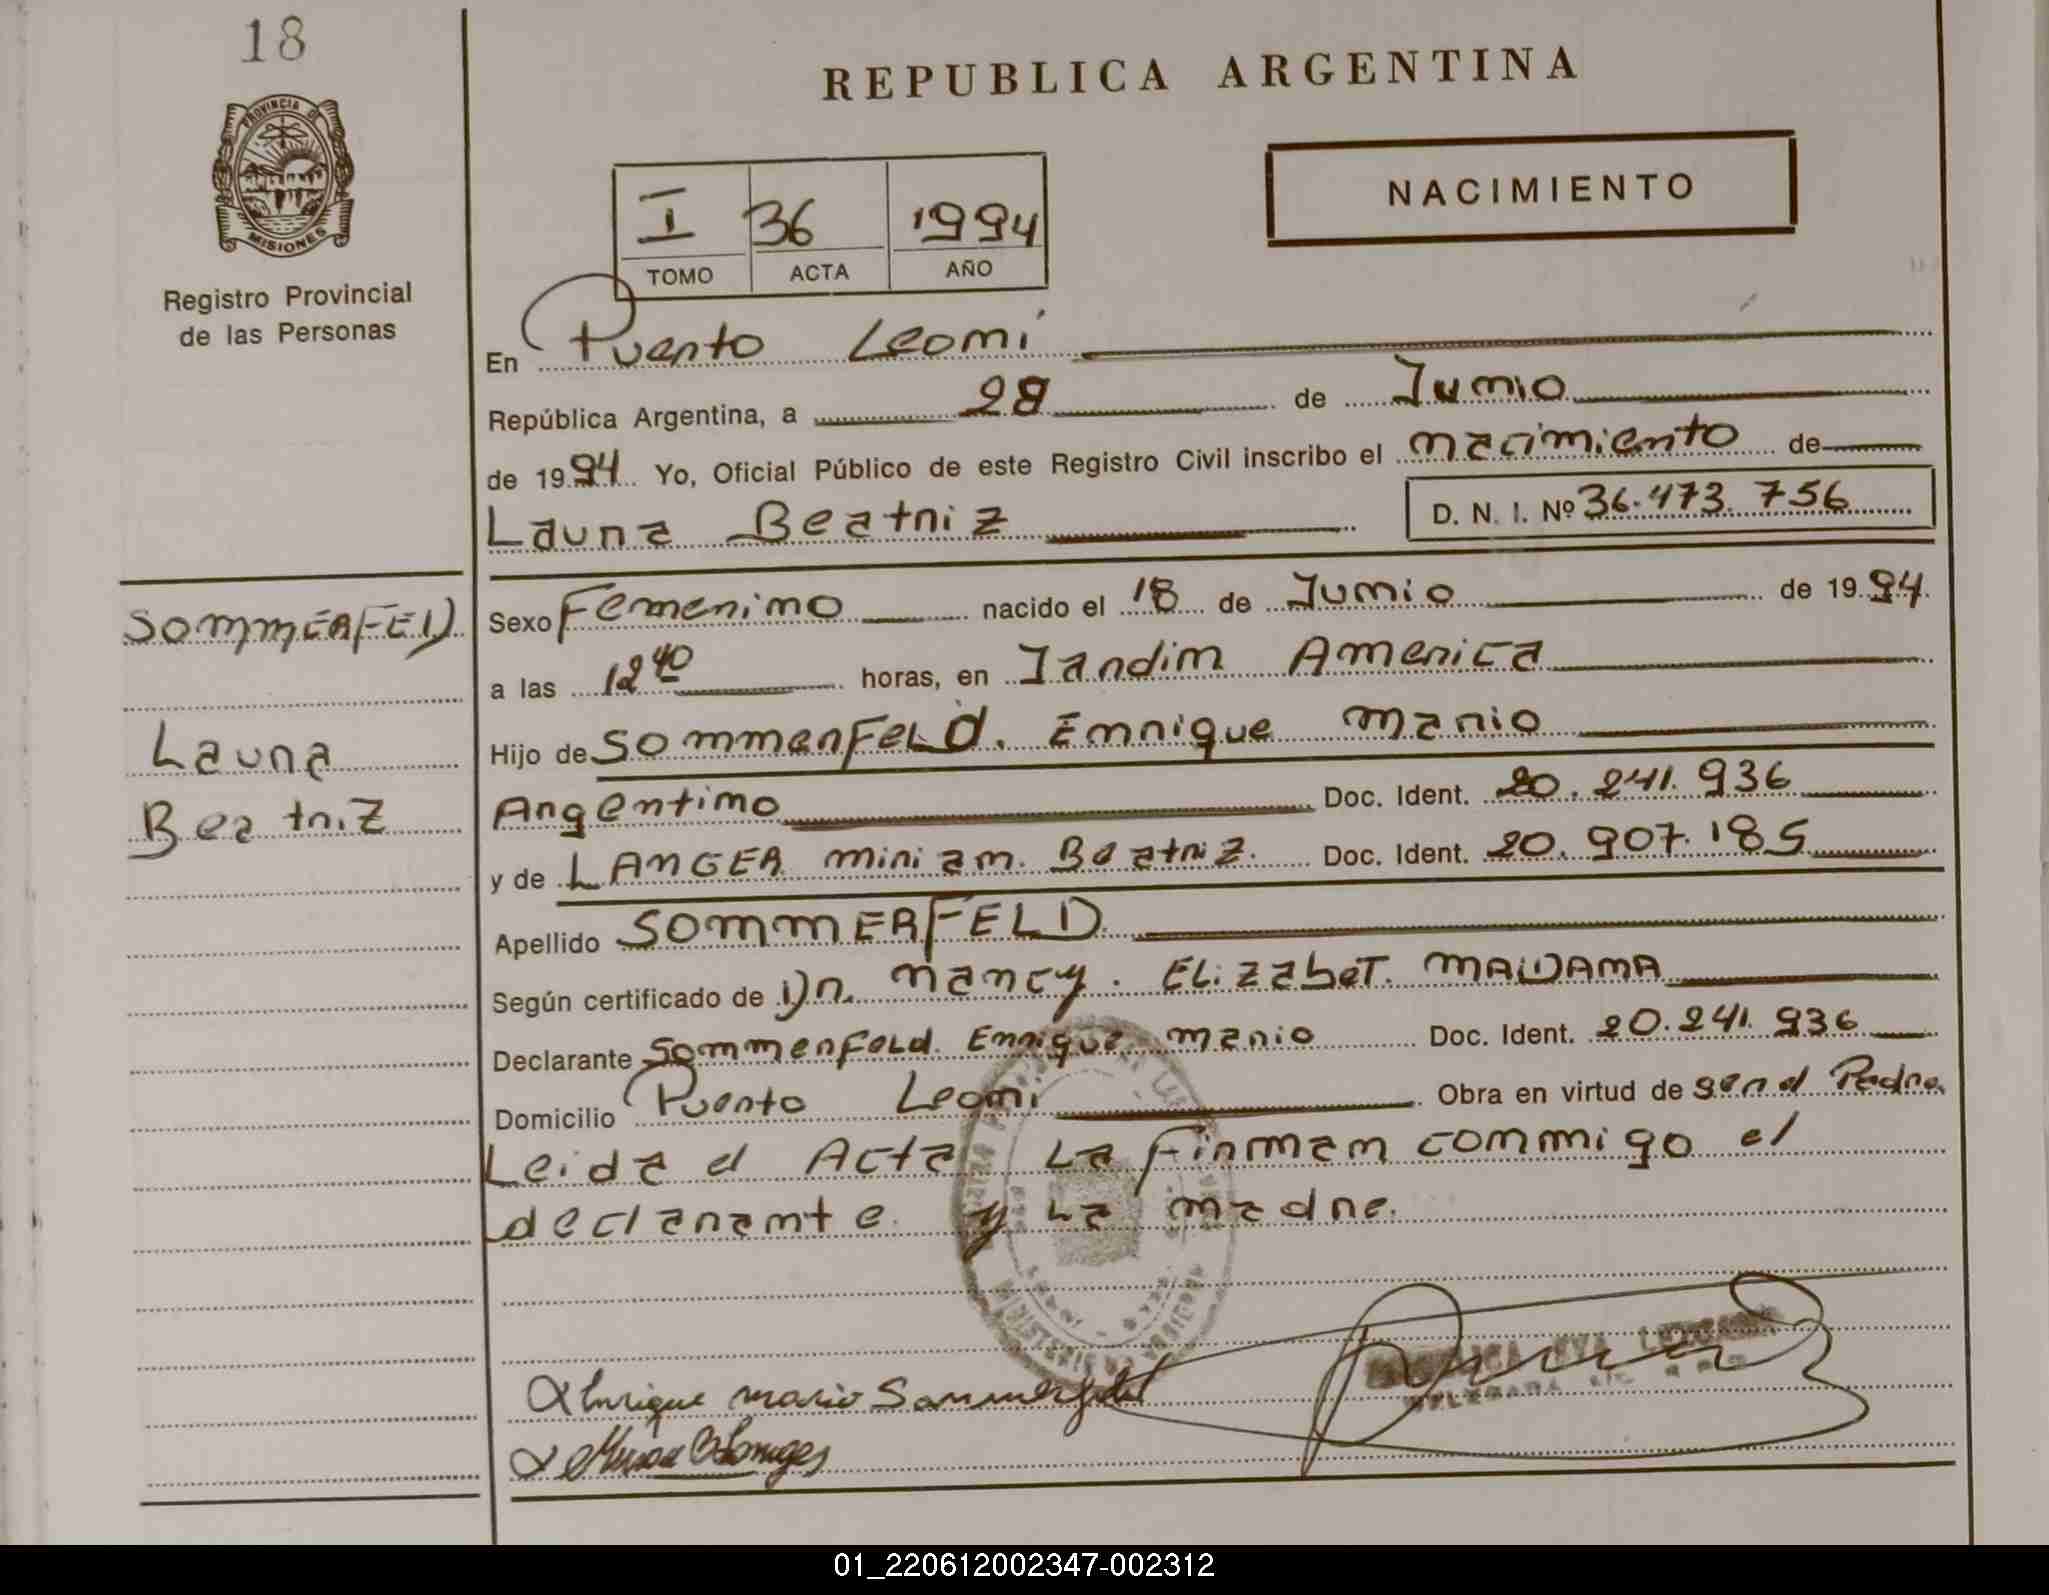 18
REPUBLICA ARGENTINA
PROVINCIA DE
MISIONES
Registro Provincial
de las Personas
NACIMIENTO
I 36 1994
TOMO ACTA AÑO
En Puerto Leoni
República Argentina, a 28 de Junio
de 1994 Yo, Oficial Público de este Registro Civil inscribo el nacimiento de
Laura Beatriz D. N. I. Nº 36.473.756
SOMMERFELD
Laura
Beatriz
Sexo Femenino nacido el 18 de Junio de 1994
a las 12 40 horas, en Jardim America
Hijo de Sommerfeld. Enrique Mario
Argentino Doc. Ident. 20.241.936
y de LANGER Miriam. Beatriz. Doc. Ident. 20.907.185
Apellido SOMMERFELD
Según certificado de Dr. Nancy. Elizabet. MAIDANA
Declarante Sommerfeld. Enrique Mario Doc. Ident. 20.241.936
Domicilio Puerto Leoni Obra en virtud de ser el Padre.
Leida el Acta La Firman conmigo el
declarante. y La madre.
Enrique Mario Sommerfeld
01_220612002347-002312